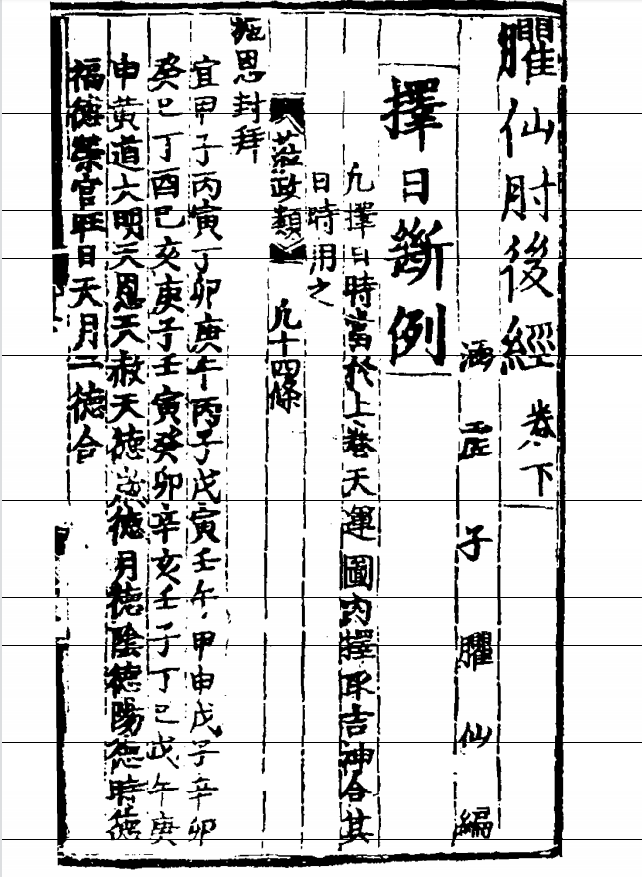 臞仙肘後經 卷下
涵虛子臞仙編
擇日斷例
凡擇日時當於上卷天運圖內擇取吉神合其
日時用之
蒞政類 凡十四條
施恩封拜
宜甲子丙寅丁卯庚午丙子戊寅壬午甲申戊子辛卯
癸巳丁酉巳亥庚子壬寅癸卯辛亥壬子丁巳戊午庚
申黃道六明天恩天赦天德歲德月德陰德陽德時德
福德榮官旺日天月二德合